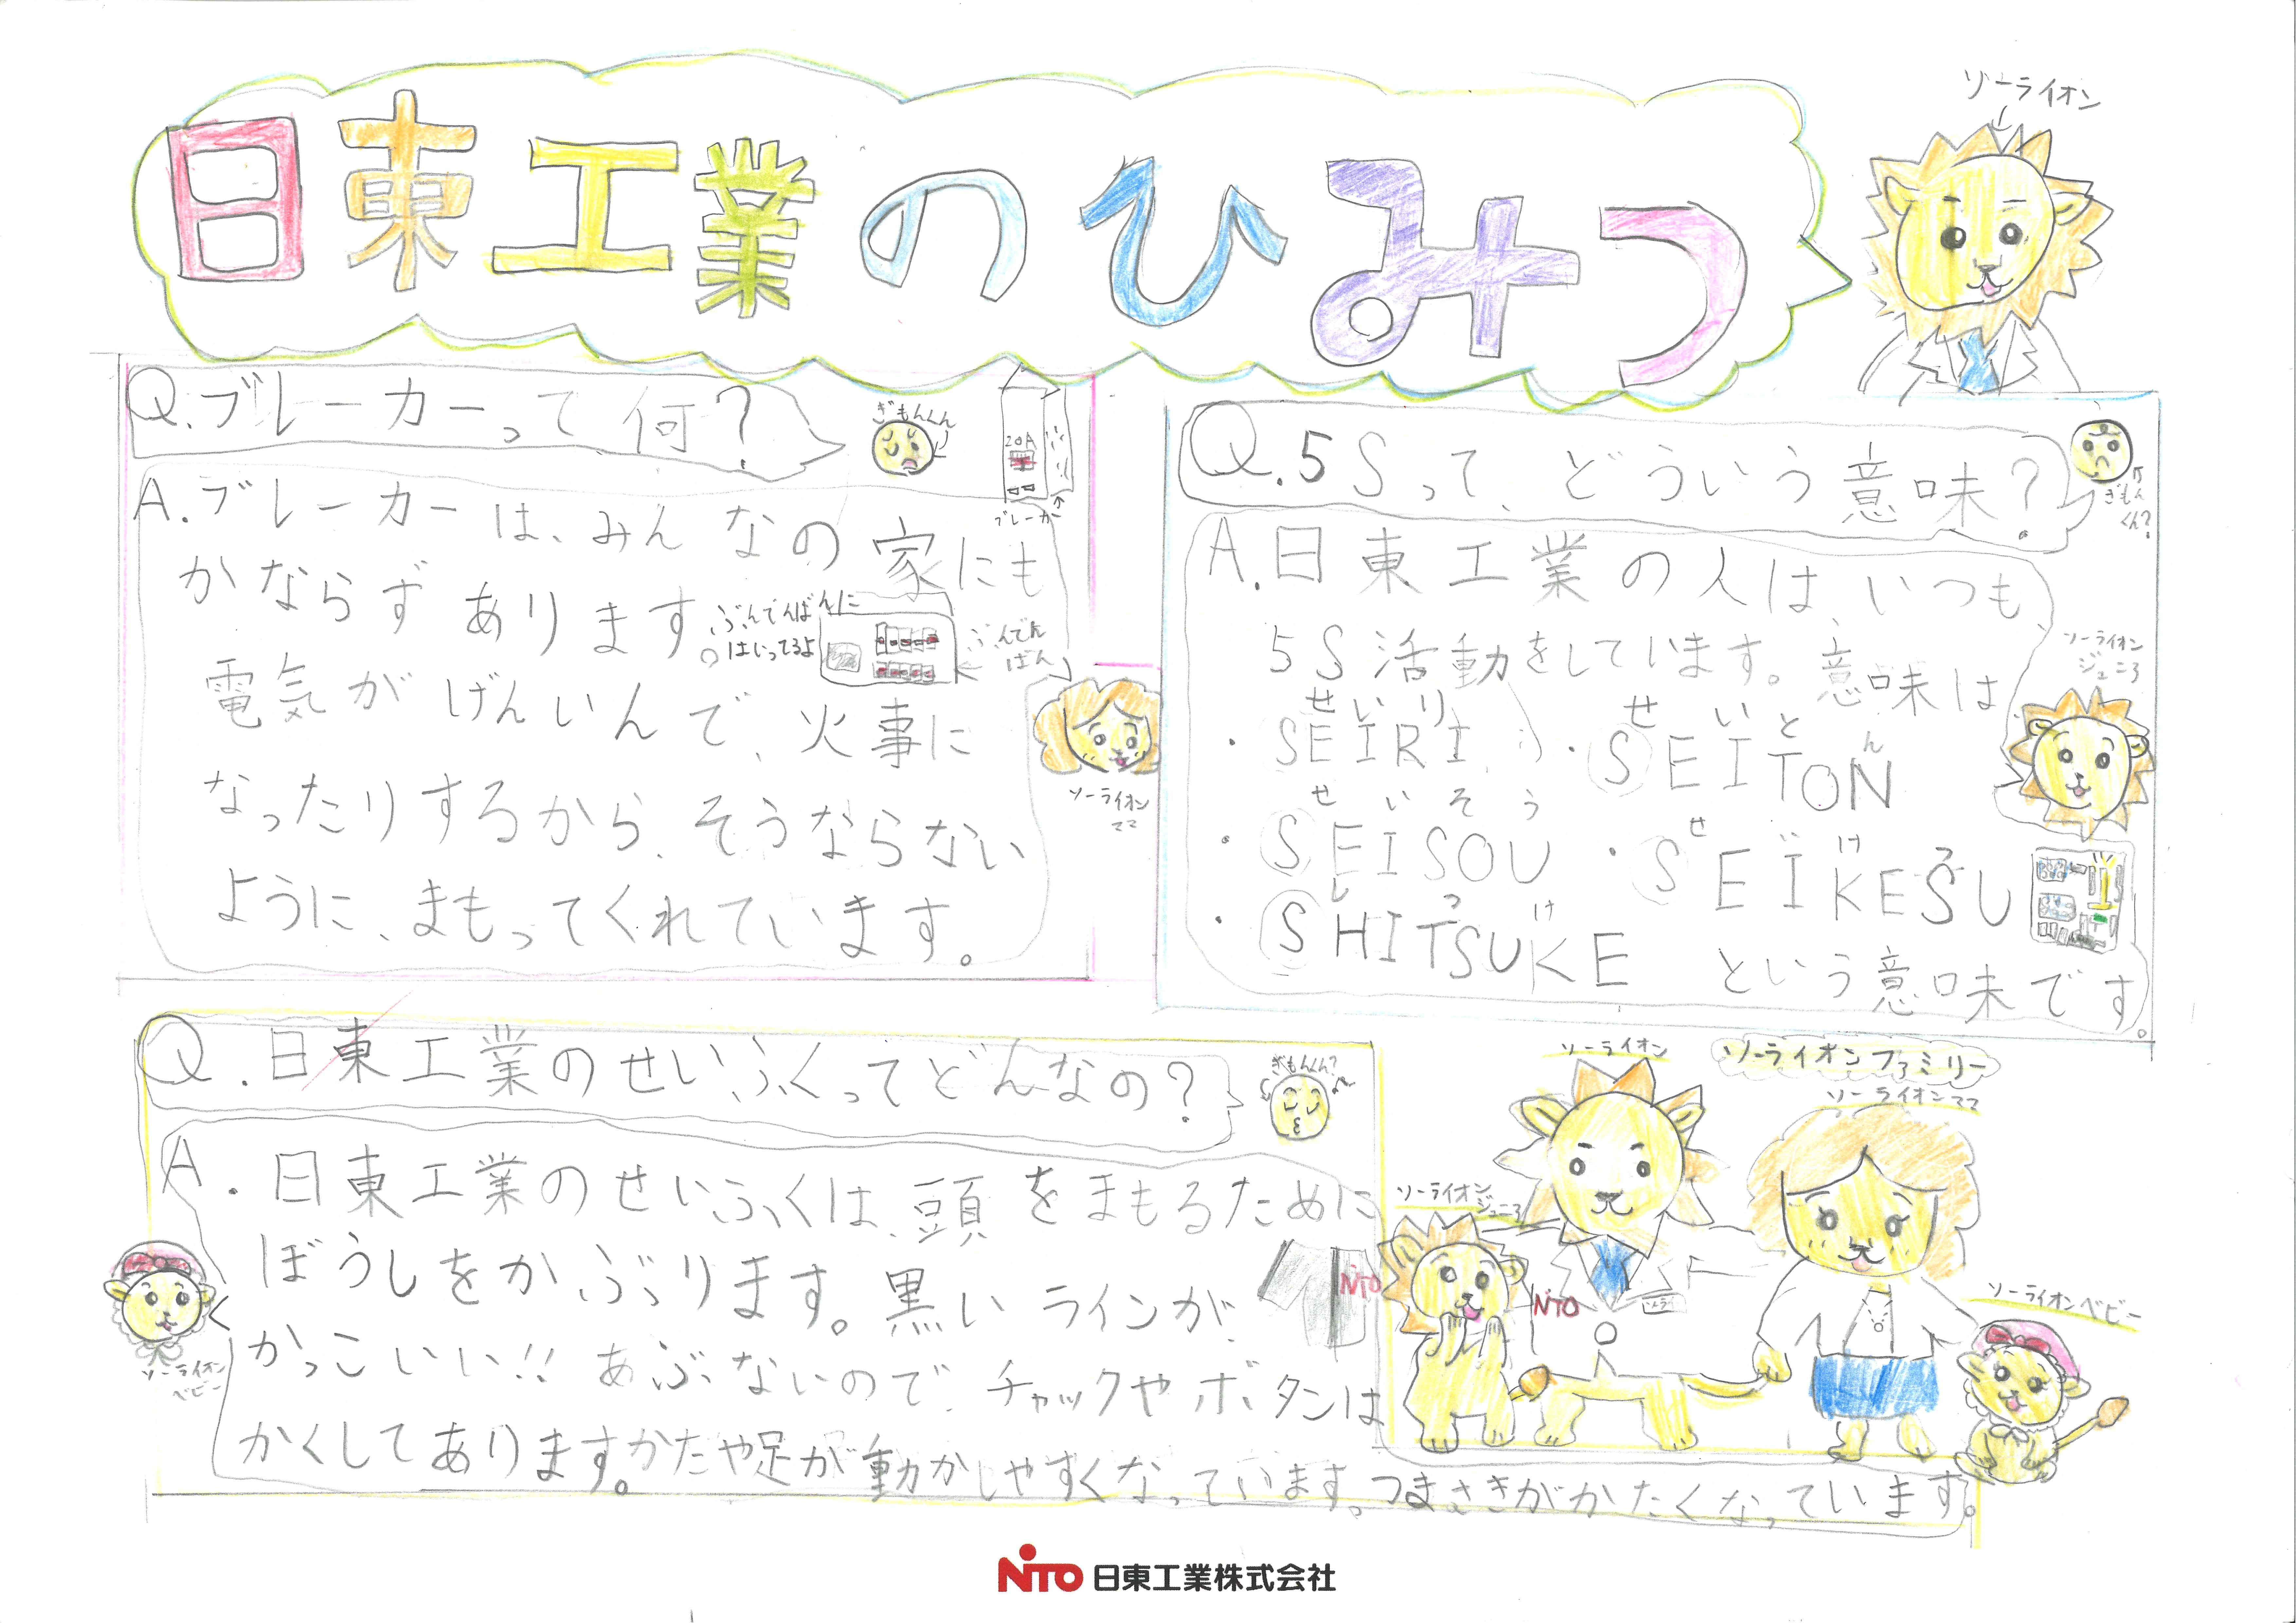 日東工業のひみつ
ソーライオン
Q.ブレーカーって何?
ぎもんくん
20A
ブレーカー
A.ブレーカーは、みんなの家にも
かならずあります。
ぶんでんばんに
はいってるよ
ぶんでん
ばん
電気がげんいんで、火事に
なったりするから、そうならない
ように、まもってくれています。
ソーライオン
ママ
Q.5Sって、どういう意味?
ぎもん
くん?
A.日東工業の人は、いつも、
5S活動をしています。意味は、
せいり せいとん
・SEIRI ・SEITON
せいそう せいけつ
・SEISOU ・SEIKESU
しつけ
・SHITSUKE という意味です。
ソーライオン
ジュニア
Q.日東工業のせいふくってどんなの?
ぎもんくん?
A.日東工業のせいふくは、頭をまもるために
ぼうしをかぶります。黒いラインが
かっこいい!!あぶないので、チャックやボタンは
かくしてあります。かたや足が動かしやすくなっています。つまさきがかたくなっています。
NITO
ソーライオン
ベビー
ソーライオンファミリー
ソーライオン
ソーライオンママ
ソーライオン
ジュニア
NITO
ソーライオンベビー
NITO 日東工業株式会社